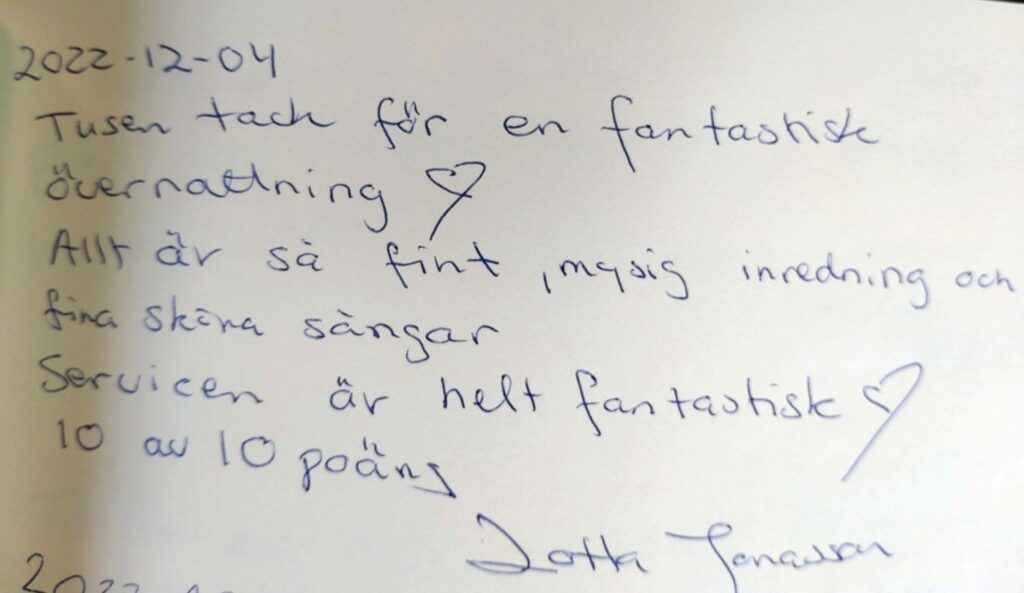 2022-12-04
Tusen tack för en fantastisk
övernattning ♡
Allt är så fint, mysig inredning och
fina sköna sängar
Servicen är helt fantastisk ♡
10 av 10 poäng
Lotta Jonasson
2022